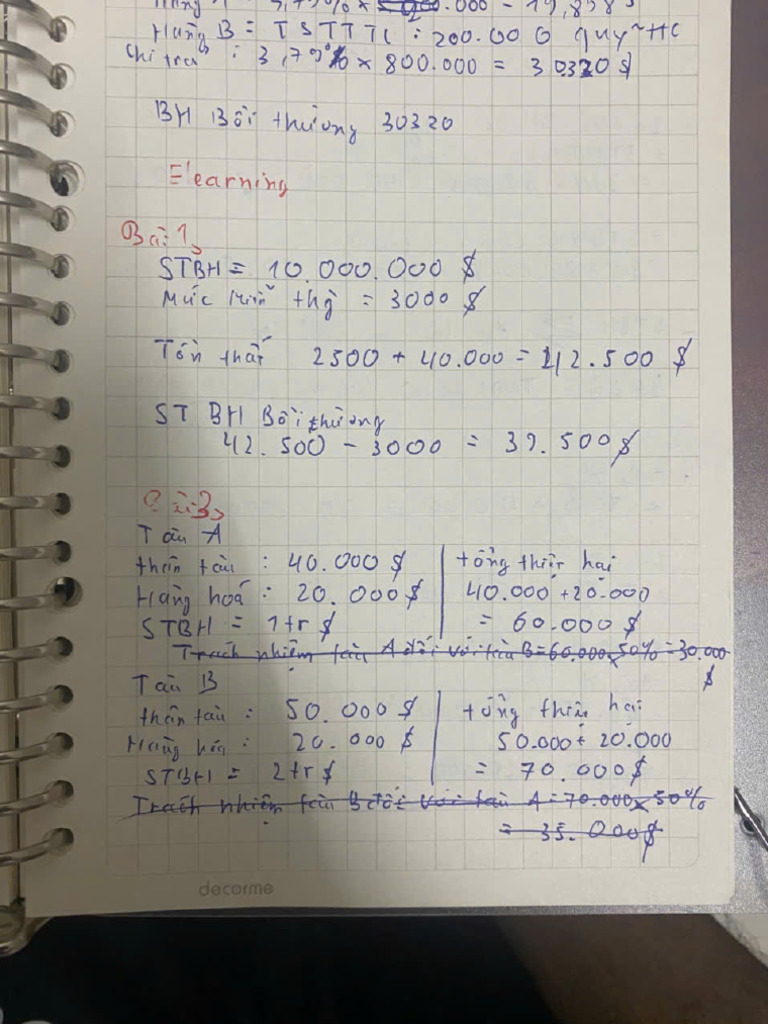 3,79% x 200.000 = 19,898
Hàng B = TSTTTC : 200.000 quỹ HC
Chi trả : 3,79% x 800.000 = 30320 $
BH Bồi thường 30320
Elearning
Bài 1,
STBH = 10.000.000 $
Mức miễn thg = 3000 $
Tổn thất 2500 + 40.000 = 42.500 $
ST BH Bồi thường
42.500 - 3000 = 39.500 $
Bài 3,
Tàu A
thân tàu : 40.000 $ tổng thiệt hại
Hàng hoá : 20.000 $ 40.000 + 20.000
STBH = 1tr $ = 60.000 $
Trách nhiệm tàu A đối với tàu B = 60.000 x 50% = 30.000
$
Tàu B
thân tàu : 50.000 $ tổng thiệt hại
Hàng hóa : 20.000 $ 50.000 + 20.000
STBH = 2tr $ = 70.000 $
Trách nhiệm tàu B đối với tàu A = 70.000 x 50%
= 35.000 $
decorme